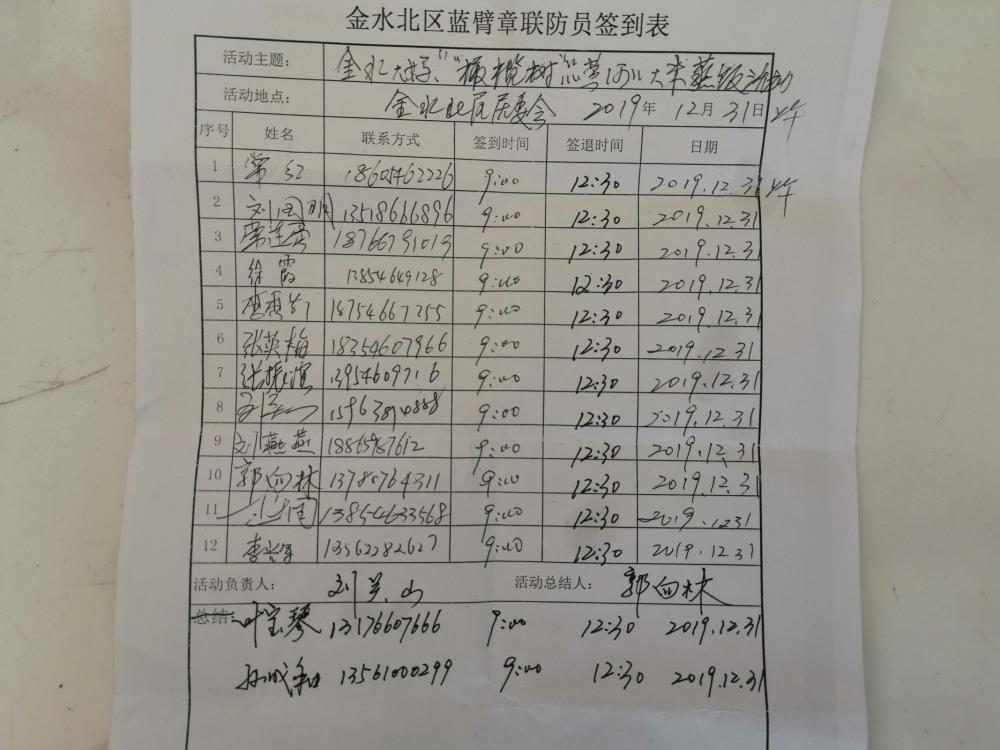 金水北区蓝臂章联防员签到表
活动主题： 金水 "橄榄树" 大米蒸饭之活动
活动地点： 金水北区居委会 2019年 12月 31日 上午
序号 姓名 联系方式 签到时间 签退时间 日期
1 常红 18605462226 9:00 12:30 2019.12.31 上午
2 刘国明 13518666896 9:00 12:30 2019.12.31
3 18766791019 9:00 12:30 2019.12.31
4 徐霞 13854649128 9:00 12:30 2019.12.31
5 18754667255 9:00 12:30 2019.12.31
6 张英梅 18354607966 9:00 12:30 2019.12.31
7 张振滨 13954609716 9:00 12:30 2019.12.31
8 15963894888 9:00 12:30 2019.12.31
9 刘燕燕 18865987612 9:00 12:30 2019.12.31
10 郭向林 13780764311 9:00 12:30 2019.12.31
11 13854633568 9:00 12:30 2019.1231
12 13562282627 9:00 12:30 2019.12.31
活动负责人： 刘兰山 活动总结人： 郭向林
总结： 叶宝琴 13176607666 9:00 12:30 2019.12.31
孙成和 13561000299 9:00 12:30 2019.12.31